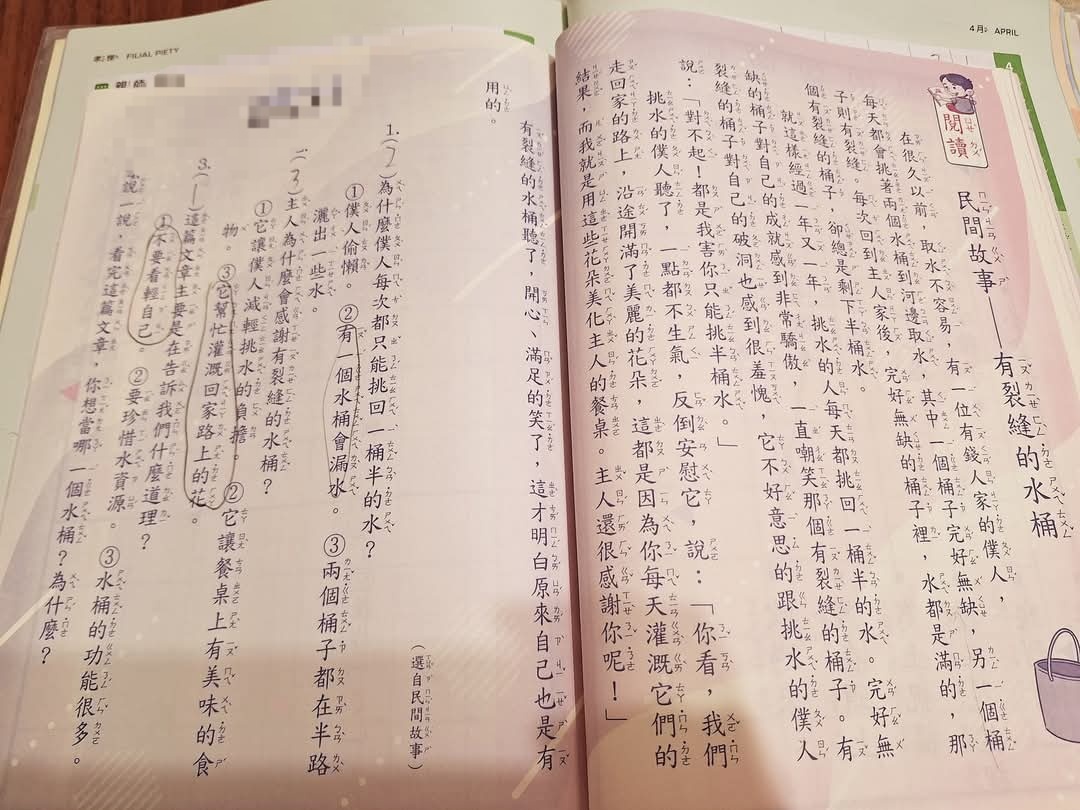 4月 APRIL
閱讀
民間故事——有裂縫的水桶
在很久以前，取水不容易，有一位有錢人家的僕人，
每天都會挑著兩個水桶到河邊取水，其中一個桶子完好無缺，另一個桶
子則有裂縫。每次回到主人家後，完好無缺的桶子裡，水都是滿的，那
個有裂縫的桶子，卻總是剩下半桶水。
就這樣經過一年又一年，挑水的人每天都挑回一桶半的水。完好無
缺的桶子對自己的成就感到非常驕傲，一直嘲笑那個有裂縫的桶子。有
裂縫的桶子對自己的破洞也感到很羞愧，它不好意思的跟挑水的僕人
說：「對不起！都是我害你只能挑半桶水。」
挑水的僕人聽了，一點都不生氣，反倒安慰它，說：「你看，我們
走回家的路上，沿途開滿了美麗的花朵，這都是因為你每天灌溉它們的
結果，而我就是用這些花朵美化主人的餐桌。主人還很感謝你呢！」
孝順 FILIAL PIETY
親師
有裂縫的水桶聽了，開心、滿足的笑了，這才明白原來自己也是有
用的。
（選自民間故事）
1.(2)為什麼僕人每次都只能挑回一桶半的水？
①僕人偷懶。②有一個水桶會漏水。③兩個桶子都在半路
灑出一些水。
(3)主人為什麼會感謝有裂縫的水桶？
①它讓僕人減輕挑水的負擔。②它讓餐桌上有美味的食
物。③它幫忙灌溉回家路上的花。
3.(1)這篇文章主要是在告訴我們什麼道理？
①不要看輕自己。②要珍惜水資源。③水桶的功能很多。
說一說，看完這篇文章，你想當哪一個水桶？為什麼？